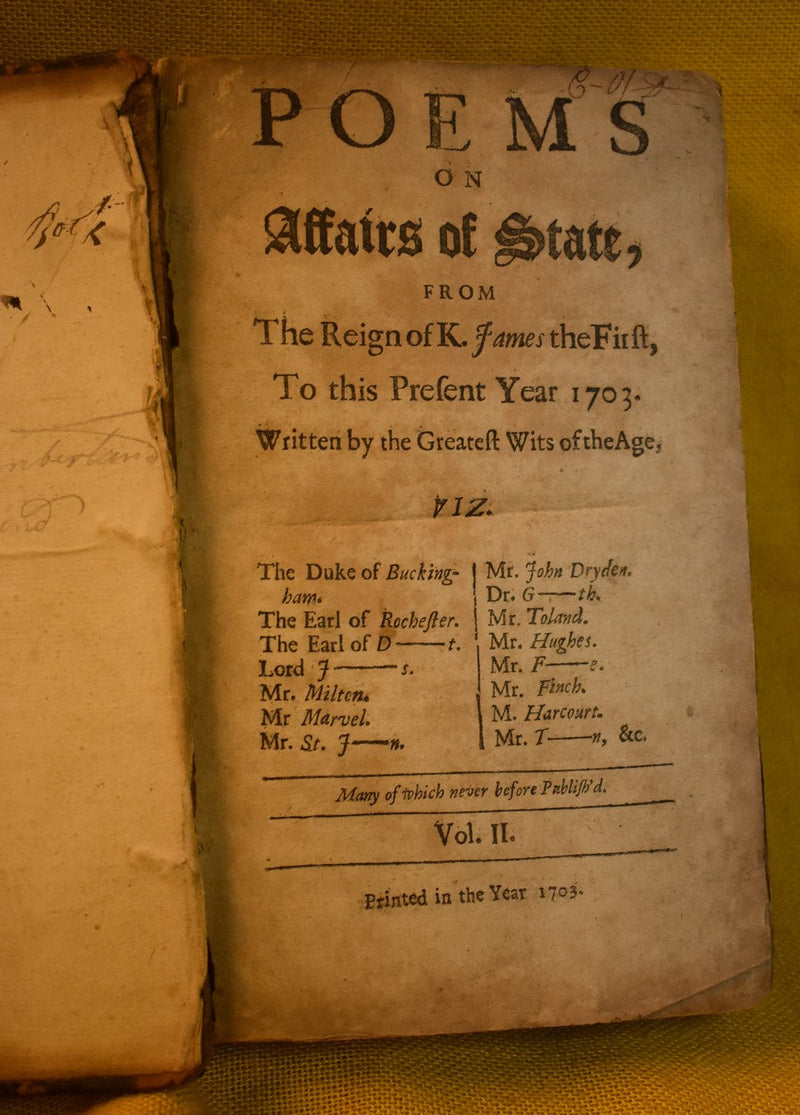 POEMS
ON
Affairs of State,
FROM
The Reign of K. James the Firſt,
To this Preſent Year 1703.
Written by the Greateſt Wits of the Age,
VIZ.
The Duke of Bucking-
ham.
The Earl of Rocheſter.
The Earl of D——t.
Lord J———s.
Mr. Milton.
Mr Marvel.
Mr. St. J——n.
Mr. John Dryden.
Dr. G——th.
Mr. Toland.
Mr. Hughes.
Mr. F——e.
Mr. Finch.
M. Harcourt.
Mr. T——n, &c.
Many of which never before Publiſh'd.
Vol. II.
Printed in the Year 1703.